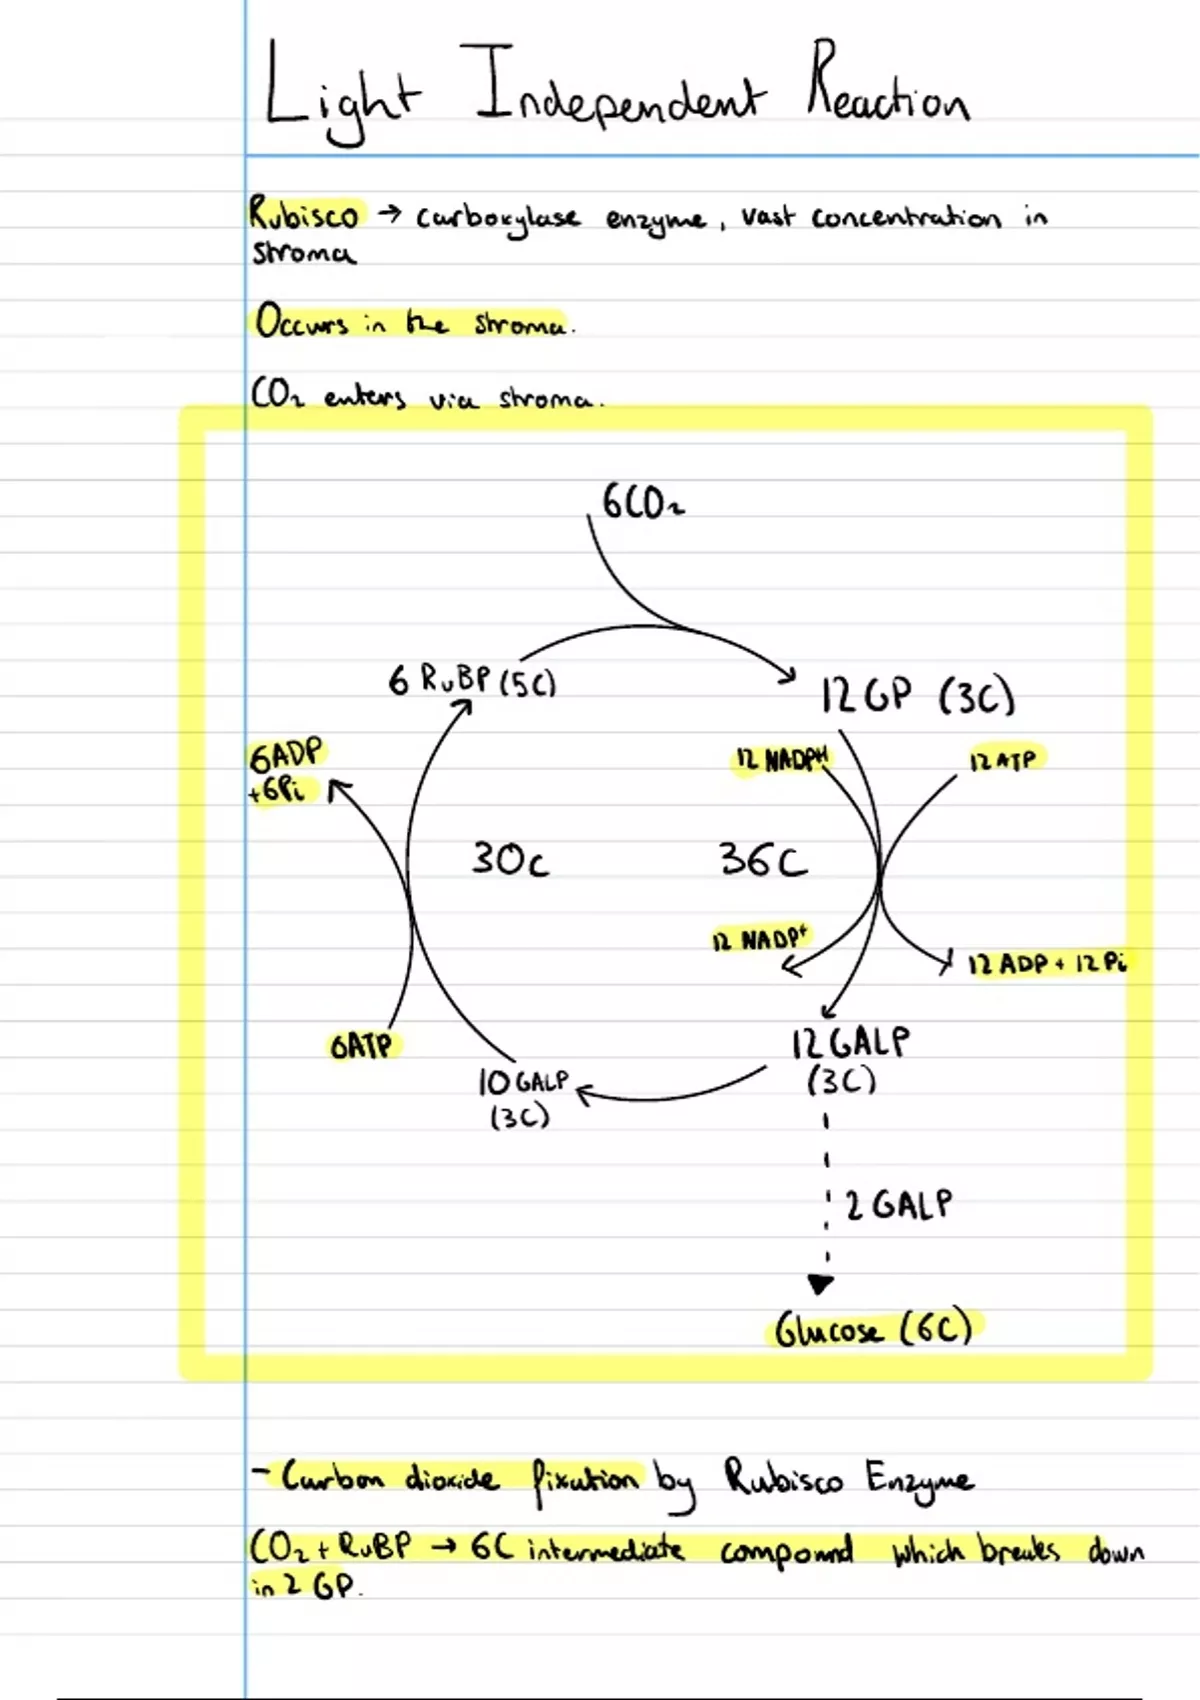 Light Independent Reaction
Rubisco → carboxylase enzyme, vast concentration in
stroma
Occurs in the stroma.
CO₂ enters via stroma.
6CO₂
6 RuBP (5C)
12 GP (3C)
6ADP
+6Pi
12 NADPH
12 ATP
30c
36C
12 NADP⁺
12 ADP + 12 Pi
6ATP
12 GALP
(3C)
10 GALP
(3C)
2 GALP
Glucose (6C)
- Carbon dioxide fixation by Rubisco Enzyme
CO₂ + RuBP → 6C intermediate compound which breaks down
in 2 GP.